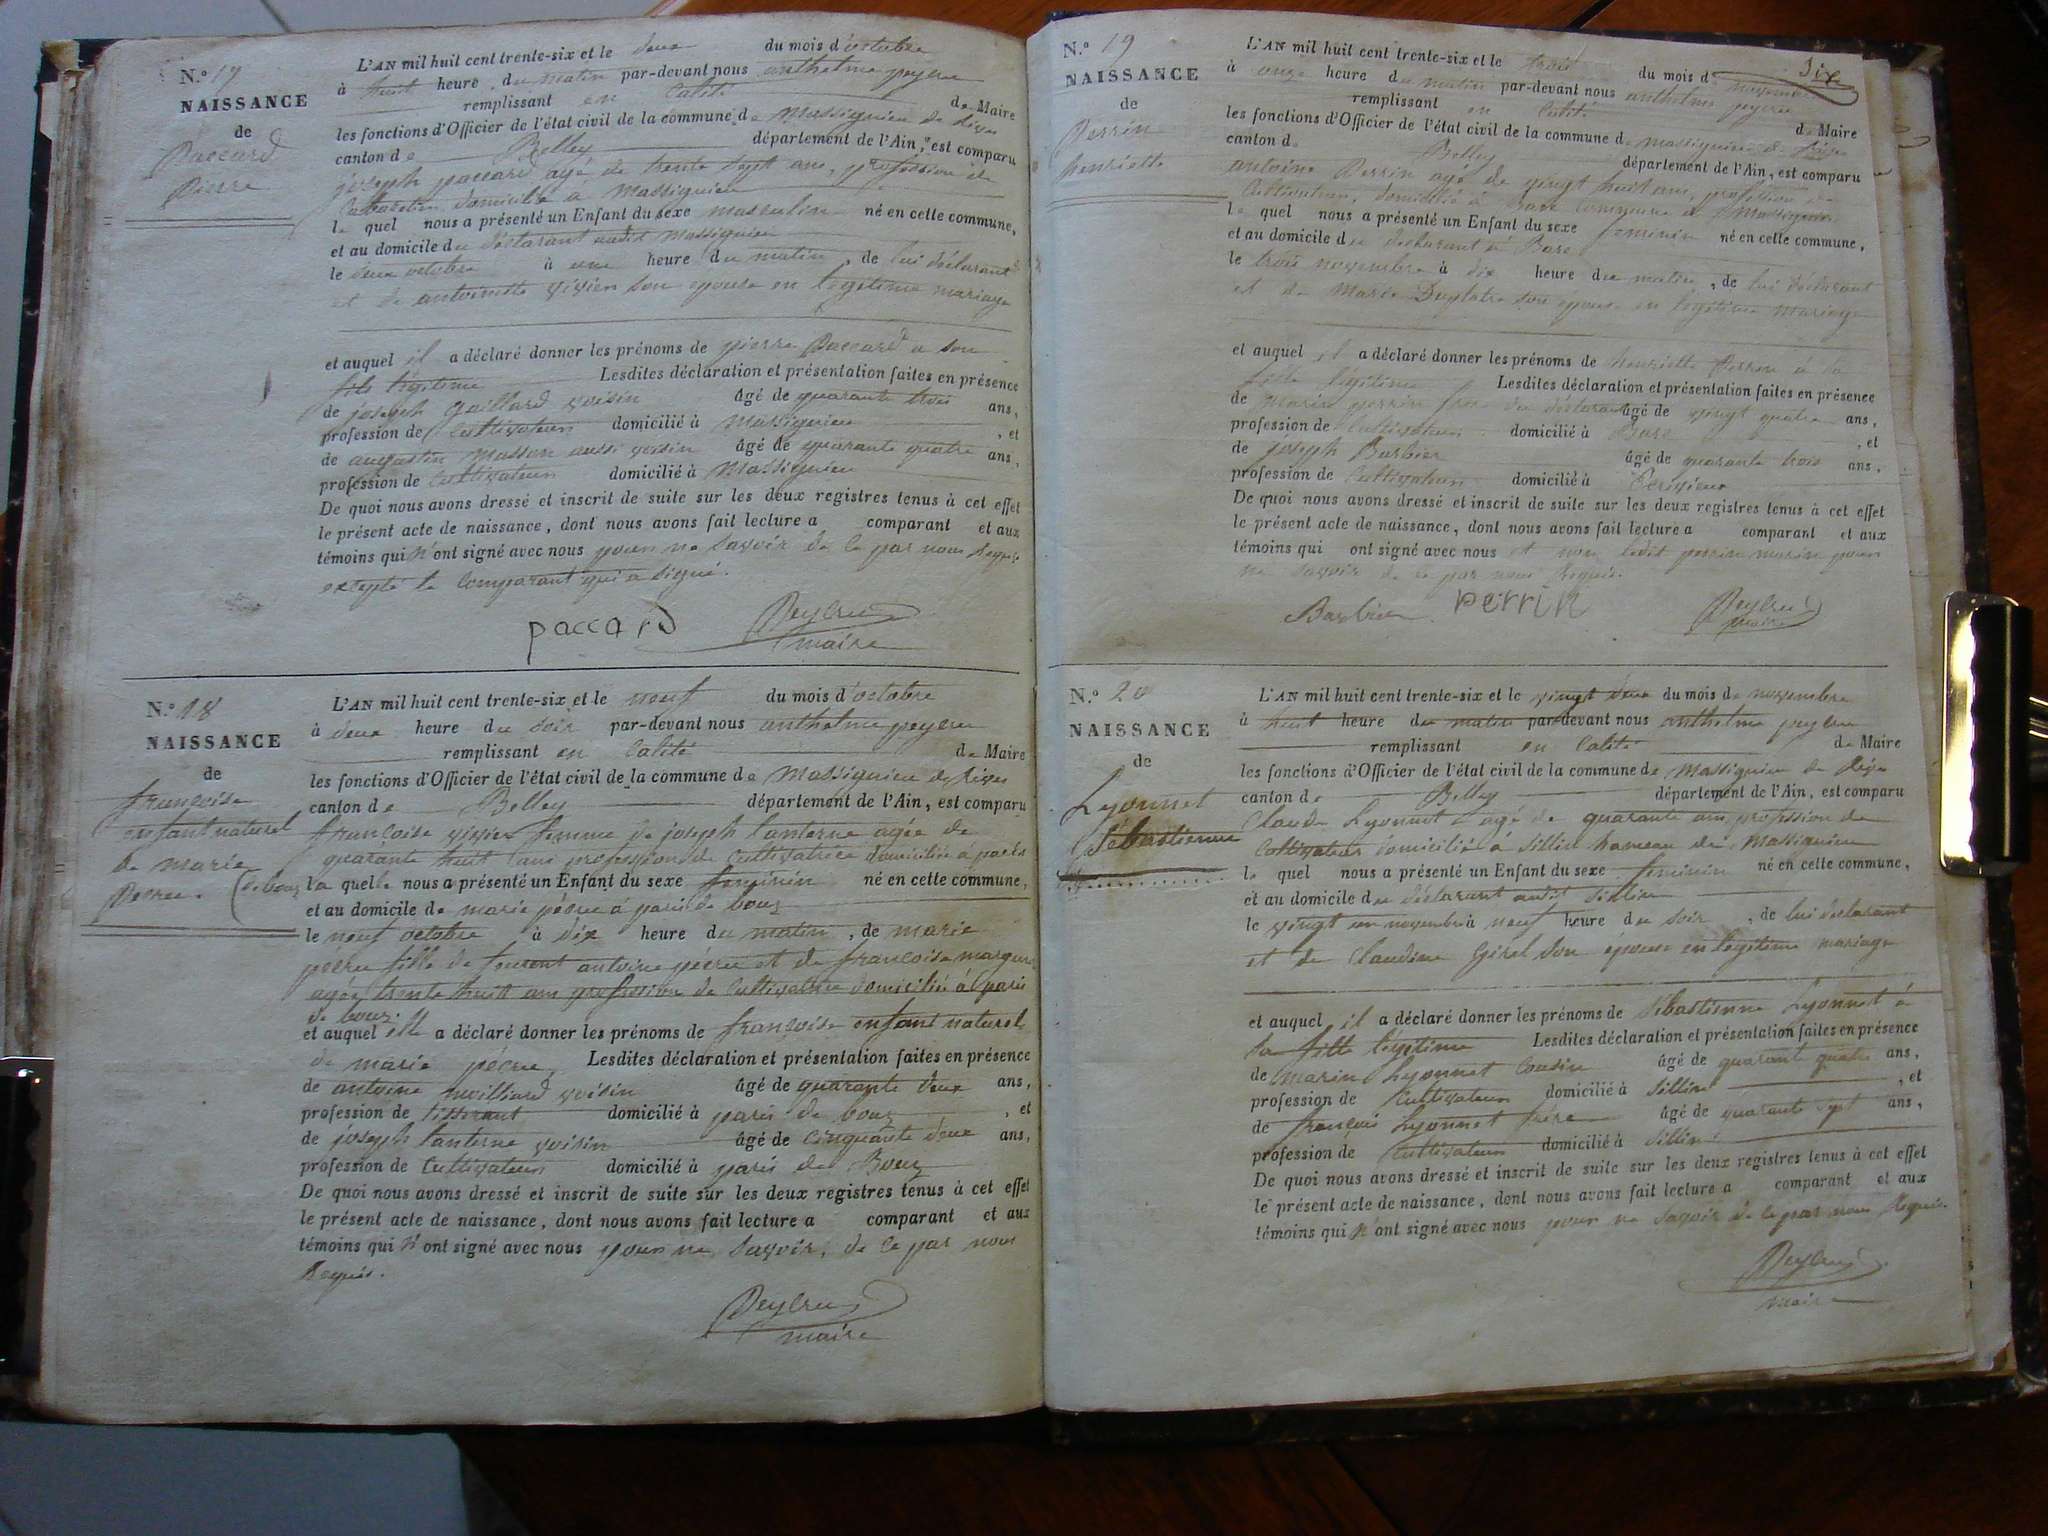 N.º 17
NAISSANCE
de
Paccard
Pierre
L'AN mil huit cent trente-six et le deux du mois d'octobre
à huit heure du matin par-devant nous anthelme peycru
remplissant en Calité de Maire
les fonctions d'Officier de l'état civil de la commune de Massignieu de Rives
canton de Belley département de l'Ain, est comparu
joseph paccard agé de trente sept ans, profession de
domicilié a Massignieu
le quel nous a présenté un Enfant du sexe masculin né en cette commune,
et au domicile du déclarant audit Massignieu
le deux octobre à une heure du matin, de lui déclarant
et de antoinette vivier son epouse en légitime mariage
et auquel il a déclaré donner les prénoms de pierre Paccard a son
fils légitime Lesdites déclaration et présentation faites en présence
de joseph Gaillard voisin âgé de quarante trois ans,
profession de Cultivateur domicilié à Massignieu, et
de augustin Masson aussi voisin âgé de quarante quatre ans,
profession de Cultivateur domicilié à Massignieu
De quoi nous avons dressé et inscrit de suite sur les deux registres tenus à cet effet
le présent acte de naissance, dont nous avons fait lecture a comparant et aux
témoins qui n'ont signé avec nous pour ne savoir de ce par nous Requis
excepté le Comparant qui a signé.
paccard Peycru
maire
N.º 18
NAISSANCE
de
françoise
enfant naturel
de marie
Pecru. (de bouz
L'AN mil huit cent trente-six et le neuf du mois d'octobre
à deux heure du soir par-devant nous anthelme peycru
remplissant en Calité de Maire
les fonctions d'Officier de l'état civil de la commune de Massignieu de Rives
canton de Belley département de l'Ain, est comparu
françoise vivier femme de joseph lanterne agée de
quarante huit ans profession de Cultivatrice domiciliée à paris
la quelle nous a présenté un Enfant du sexe feminin né en cette commune,
et au domicile de marie pécru à paris de bouz
le neuf octobre à dix heure du matin, de marie
pecru fille de antoine pecru et de françoise
agée trente huit ans profession de Cultivatrice domicilié à paris
de bouz.
et auquel elle a déclaré donner les prénoms de françoise enfant naturel
de marie pécru. Lesdites déclaration et présentation faites en présence
de antoine voisin âgé de quarante deux ans,
profession de tisserant domicilié à paris de bouz, et
de joseph lanterne voisin âgé de cinquante deux ans,
profession de Cultivateur domicilié à paris de Bouz
De quoi nous avons dressé et inscrit de suite sur les deux registres tenus à cet effet
le présent acte de naissance, dont nous avons fait lecture a comparant et aux
témoins qui n'ont signé avec nous pour ne savoir, de ce par nous
Requis.
Peycru
maire
dix
N.º 19
NAISSANCE
de
Perrin
henriette
L'AN mil huit cent trente-six et le trois du mois de novembre
à onze heure du matin par-devant nous anthelme peycru
remplissant en Calité de Maire
les fonctions d'Officier de l'état civil de la commune de massignieu de Rives
canton de Belley département de l'Ain, est comparu
antoine Perrin agé de vingt huit ans, profession de
Cultivateur, domicilié à Bare Commune de Massignieu
le quel nous a présenté un Enfant du sexe feminin né en cette commune,
et au domicile du déclarant à Bare
le trois novembre à dix heure du matin, de lui déclarant
et de Marie son epouse en légitime mariage
et auquel il a déclaré donner les prénoms de henriette Perrin a sa
fille légitime Lesdites déclaration et présentation faites en présence
de Marin perrin frere du déclarant âgé de vingt quatre ans,
profession de Cultivateur domicilié à Bare, et
de joseph Barbier âgé de quarante trois ans,
profession de Cultivateur domicilié à
De quoi nous avons dressé et inscrit de suite sur les deux registres tenus à cet effet
le présent acte de naissance, dont nous avons fait lecture a comparant et aux
témoins qui ont signé avec nous et non ledit perrin marin pour
ne savoir de ce par nous Requis.
Barbier perrin Peycru
maire
N.º 20
NAISSANCE
de
Lyonnet
Sébastienne
L'AN mil huit cent trente-six et le vingt deux du mois de novembre
à huit heure du matin par-devant nous anthelme peycru
remplissant en Calité de Maire
les fonctions d'Officier de l'état civil de la commune de Massignieu de Rives
canton de Belley département de l'Ain, est comparu
Claude Lyonnet agé de quarante ans profession de
Cultivateur domicilié à Sillin hameau de Massignieu
le quel nous a présenté un Enfant du sexe feminin né en cette commune,
et au domicile du déclarant audit Sillin
le vingt un novembre à neuf heure du soir, de lui déclarant
et de Claudine Girel son épouse en légitime mariage
et auquel il a déclaré donner les prénoms de Sébastienne Lyonnet à
sa fille légitime Lesdites déclaration et présentation faites en présence
de Marin Lyonnet Cousin âgé de quarante quatre ans,
profession de Cultivateur domicilié à Sillin, et
de françois Lyonnet frère âgé de quarante sept ans,
profession de Cultivateur domicilié à Sillin
De quoi nous avons dressé et inscrit de suite sur les deux registres tenus à cet effet
le présent acte de naissance, dont nous avons fait lecture a comparant et aux
témoins qui n'ont signé avec nous pour ne savoir de ce par nous Requis.
Peycru
maire